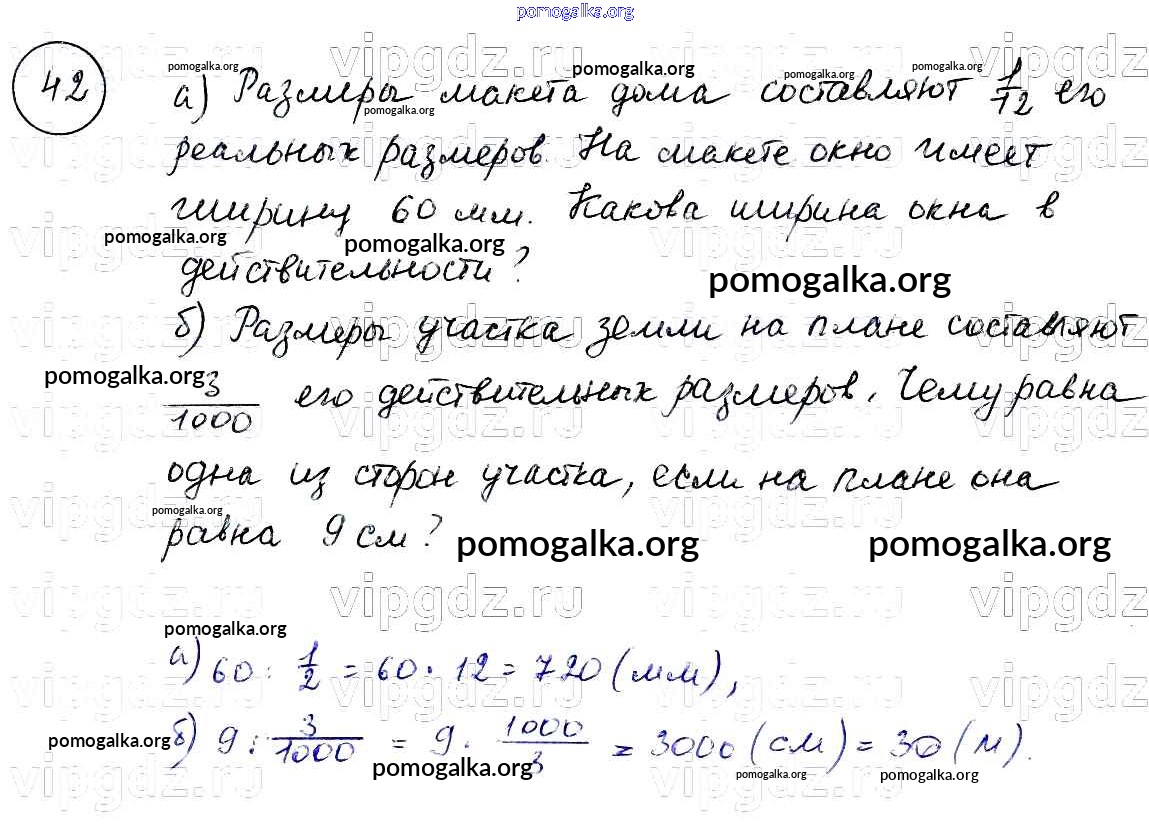 pomogalka.org
42
а) Размеры макета дома составляют 1/12 его
реальных размеров. На макете окно имеет
ширину 60 мм. Какова ширина окна в
действительности?
б) Размеры участка земли на плане составляют
3/1000 его действительных размеров. Чему равна
одна из сторон участка, если на плане она
равна 9 см?
а) 60 : 1/2 = 60 · 12 = 720 (мм),
б) 9 : 3/1000 = 9 · 1000/3 = 3000 (см) = 30 (м).
vipgdz.ru